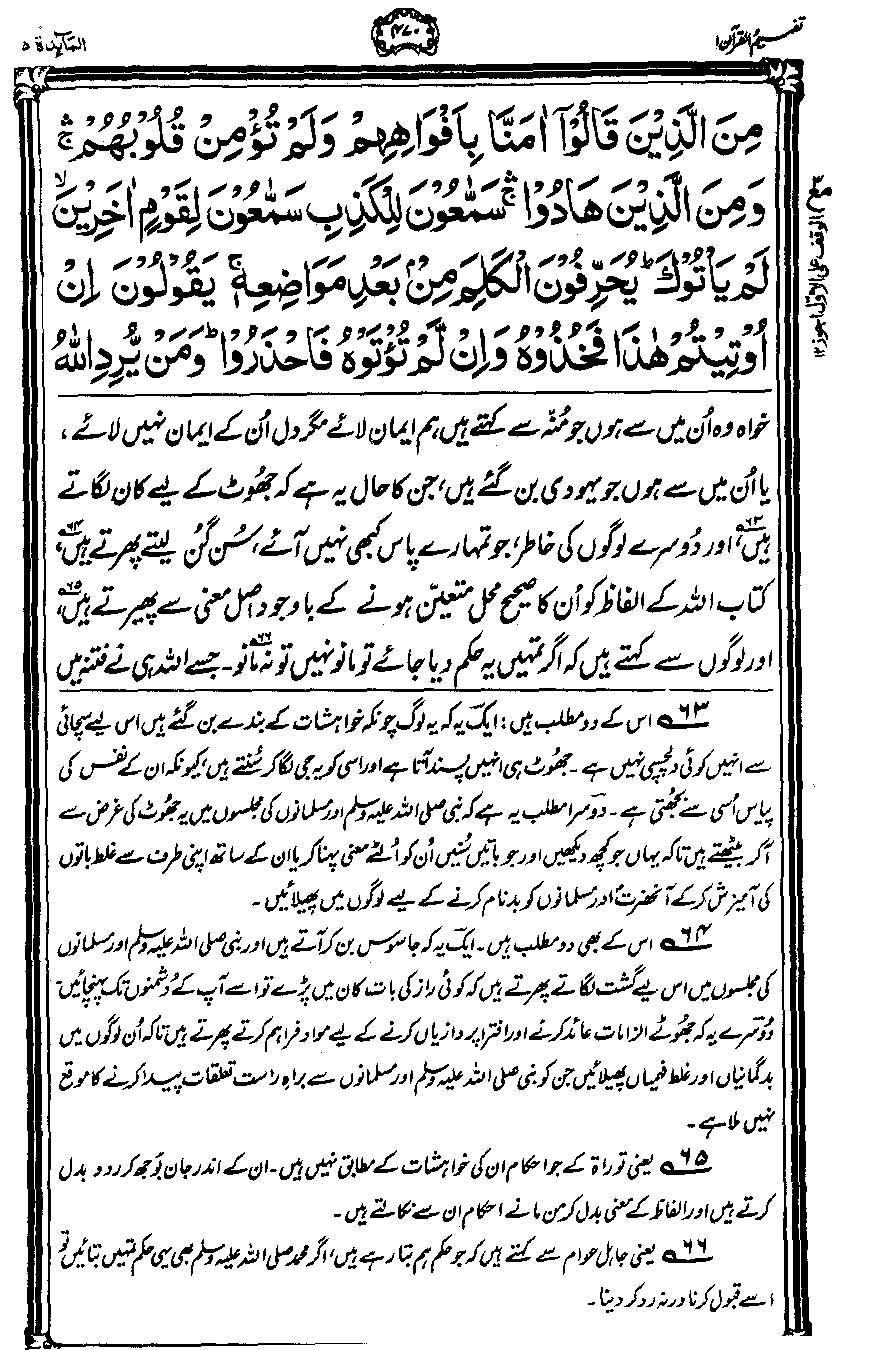 تفہیم القرآن ۱
۴۷۰
المآىِٕدة ۵
مِنَ الَّذِیْنَ قَالُوْۤا اٰمَنَّا بِاَفْوَاهِهِمْ وَلَمْ تُؤْمِنْ قُلُوْبُهُمْ ۛۚ
وَمِنَ الَّذِیْنَ هَادُوْا ۛۚ سَمّٰعُوْنَ لِلْكَذِبِ سَمّٰعُوْنَ لِقَوْمٍ اٰخَرِیْنَ ۙ
لَمْ یَاْتُوْكَ ؕ یُحَرِّفُوْنَ الْكَلِمَ مِنْۢ بَعْدِ مَوَاضِعِهٖ ۚ یَقُوْلُوْنَ اِنْ
اُوْتِیْتُمْ هٰذَا فَخُذُوْهُ وَاِنْ لَّمْ تُؤْتَوْهُ فَاحْذَرُوْا ؕ وَمَنْ یُّرِدِ اللّٰهُ
مع ۳ الوقف علی الاوّل اجوز ۱۲
خواہ وہ اُن میں سے ہوں جو مُنہ سے کہتے ہیں ہم ایمان لائے مگر دل اُن کے ایمان نہیں لائے،
یا اُن میں سے ہوں جو یہودی بن گئے ہیں، جن کا حال یہ ہے کہ جھُوٹ کے لیے کان لگاتے
ہیں،۶۳ اور دُوسرے لوگوں کی خاطر، جو تمہارے پاس کبھی نہیں آئے، سُن گُن لیتے پھرتے ہیں،۶۴
کتاب اللہ کے الفاظ کو اُن کا صحیح محل متعیّن ہونے کے باوجود اصل معنی سے پھیرتے ہیں،۶۵
اور لوگوں سے کہتے ہیں کہ اگر تمہیں یہ حکم دیا جائے تو مانو نہیں تو نہ مانو۔۶۶ جسے اللہ ہی نے فتنہ میں
۶۳ اس کے دو مطلب ہیں: ایک یہ کہ یہ لوگ چونکہ خواہشات کے بندے بن گئے ہیں اس لیے سچائی
سے انہیں کوئی دلچسپی نہیں ہے۔ جھوٹ ہی انہیں پسند آتا ہے اور اسی کو یہ جی لگا کر سُنتے ہیں، کیونکہ ان کے نفس کی
پیاس اُسی سے بُجھتی ہے۔ دوسرا مطلب یہ ہے کہ نبی صلی اللہ علیہ وسلم اور مسلمانوں کی مجلسوں میں یہ جھوٹ کی غرض سے
آ کر بیٹھتے ہیں تاکہ یہاں جو کچھ دیکھیں اور جو باتیں سُنیں اُن کو اُلٹے معنی پہنا کر یا ان کے ساتھ اپنی طرف سے غلط باتوں
کی آمیزش کر کے آنحضرتؐ اور مسلمانوں کو بدنام کرنے کے لیے لوگوں میں پھیلائیں۔
۶۴ اس کے بھی دو مطلب ہیں۔ ایک یہ کہ جاسوس بن کر آتے ہیں اور نبی صلی اللہ علیہ وسلم اور مسلمانوں
کی مجلسوں میں اس لیے گشت لگاتے پھرتے ہیں کہ کوئی راز کی بات کان میں پڑے تو اسے آپ کے دُشمنوں تک پہنچائیں۔
دُوسرے یہ کہ جھوٹے الزامات عائد کرنے اور افترا پردازیاں کرنے کے لیے مواد فراہم کرتے پھرتے ہیں تاکہ اُن لوگوں میں
بدگمانیاں اور غلط فہمیاں پھیلائیں جن کو نبی صلی اللہ علیہ وسلم اور مسلمانوں سے براہِ راست تعلقات پیدا کرنے کا موقع
نہیں ملا ہے۔
۶۵ یعنی توراۃ کے جو احکام ان کی خواہشات کے مطابق نہیں ہیں۔ ان کے اندر جان بُوجھ کر ردو بدل
کرتے ہیں اور الفاظ کے معنی بدل کر من مانے احکام ان سے نکالتے ہیں۔
۶۶ یعنی جاہل عوام سے کہتے ہیں کہ جو حکم ہم بتا رہے ہیں، اگر محمد صلی اللہ علیہ وسلم بھی یہی حکم تمہیں بتائیں تو
اسے قبول کرنا ورنہ رد کر دینا۔